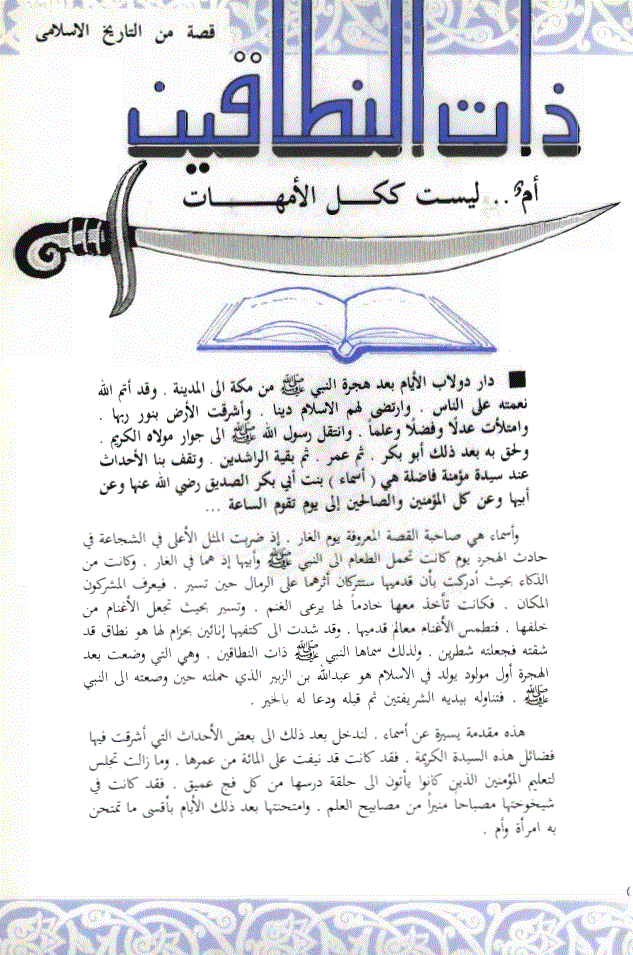 قصة من التاريخ الاسلامى
ذات النطاقين
أم .. ليست ككل الأمهات
دار دولاب الأيام بعد هجرة النبي ﷺ من مكة الى المدينة . وقد أتم الله
نعمته على الناس . وارتضى لهم الاسلام دينا . وأشرقت الأرض بنور ربها .
وامتلأت عدلًا وفضلًا وعلماً . وانتقل رسول الله ﷺ الى جوار مولاه الكريم .
ولحق به بعد ذلك أبو بكر . ثم عمر . ثم بقية الراشدين . وتقف بنا الأحداث
عند سيدة مؤمنة فاضلة هي ( أسماء ) بنت أبي بكر الصديق رضي الله عنها وعن
أبيها وعن كل المؤمنين والصالحين إلى يوم تقوم الساعة ...
وأسماء هي صاحبة القصة المعروفة يوم الغار . إذ ضربت المثل الأعلى في الشجاعة في
حادث الهجرة يوم كانت تحمل الطعام الى النبي ﷺ وأبيها إذ هما في الغار . وكانت من
الذكاء بحيث أدركت بأن قدميها ستتركان أثرهما على الرمال حين تسير . فيعرف المشركون
المكان . فكانت تأخذ معها خادماً لها يرعى الغنم . وتسير بحيث تجعل الأغنام من
خلفها . فتطمس الأغنام معالم قدميها . وقد شدت الى كتفيها إنائين بحزام لها هو نطاق قد
شقته فجعلته شطرين . ولذلك سماها النبي ﷺ ذات النطاقين . وهي التي وضعت بعد
الهجرة أول مولود يولد في الاسلام هو عبدالله بن الزبير الذي حملته حين وضعته الى النبي
ﷺ . فتناوله بيديه الشريفتين ثم قبله ودعا له بالخير .
هذه مقدمة يسيرة عن أسماء . لندخل بعد ذلك الى بعض الأحداث التي أشرقت فيها
فضائل هذه السيدة الكريمة . فقد كانت قد نيفت على المائة من عمرها . وما زالت تجلس
لتعليم المؤمنين الذين كانوا يأتون الى حلقة درسها من كل فج عميق . فقد كانت في
شيخوختها مصباحاً منيراً من مصابيح العلم . وامتحنتها بعد ذلك الأيام بأقسى ما تمتحن
به امرأة وأم .